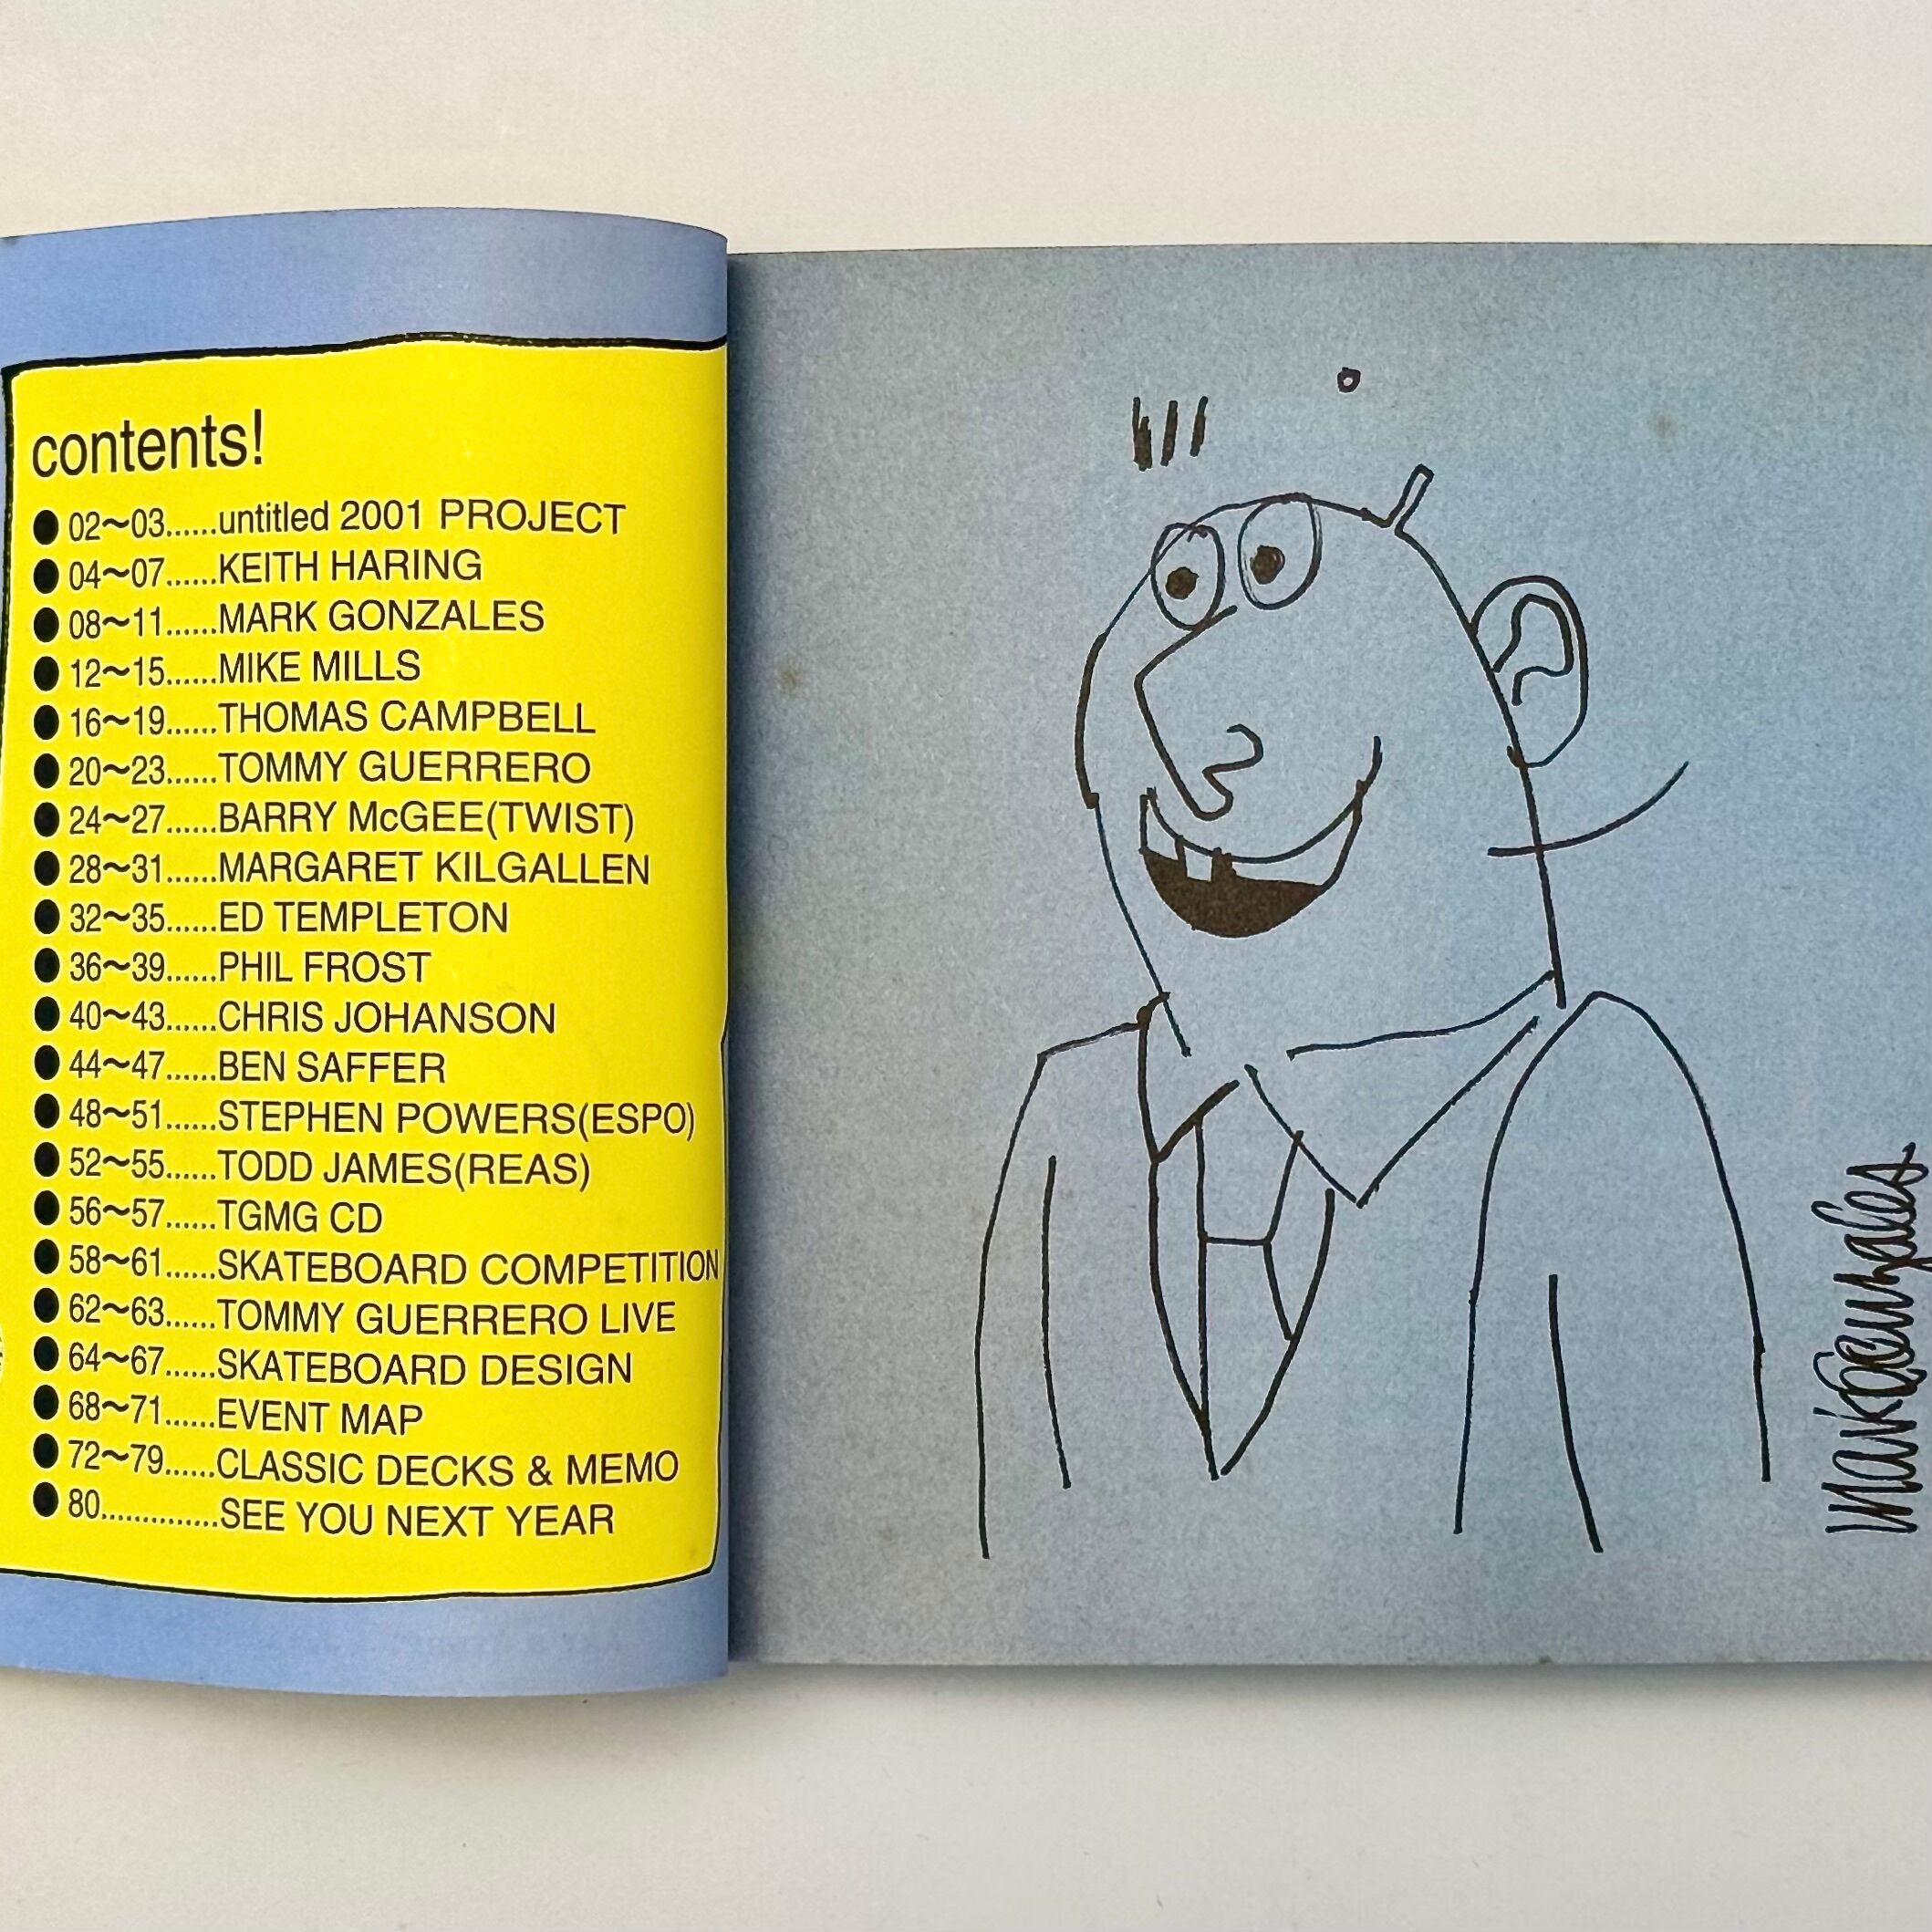 contents!
02～03......untitled 2001 PROJECT
04～07......KEITH HARING
08～11......MARK GONZALES
12～15......MIKE MILLS
16～19......THOMAS CAMPBELL
20～23......TOMMY GUERRERO
24～27......BARRY McGEE(TWIST)
28～31......MARGARET KILGALLEN
32～35......ED TEMPLETON
36～39......PHIL FROST
40～43......CHRIS JOHANSON
44～47......BEN SAFFER
48～51......STEPHEN POWERS(ESPO)
52～55......TODD JAMES(REAS)
56～57......TGMG CD
58～61......SKATEBOARD COMPETITION
62～63......TOMMY GUERRERO LIVE
64～67......SKATEBOARD DESIGN
68～71......EVENT MAP
72～79......CLASSIC DECKS & MEMO
80..............SEE YOU NEXT YEAR